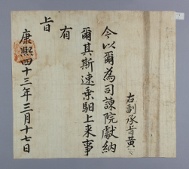 右副承旨黃
今以爾爲司諫院獻納
爾其斯速乘馹上来事
有
旨
康熙四十三年三月十七日